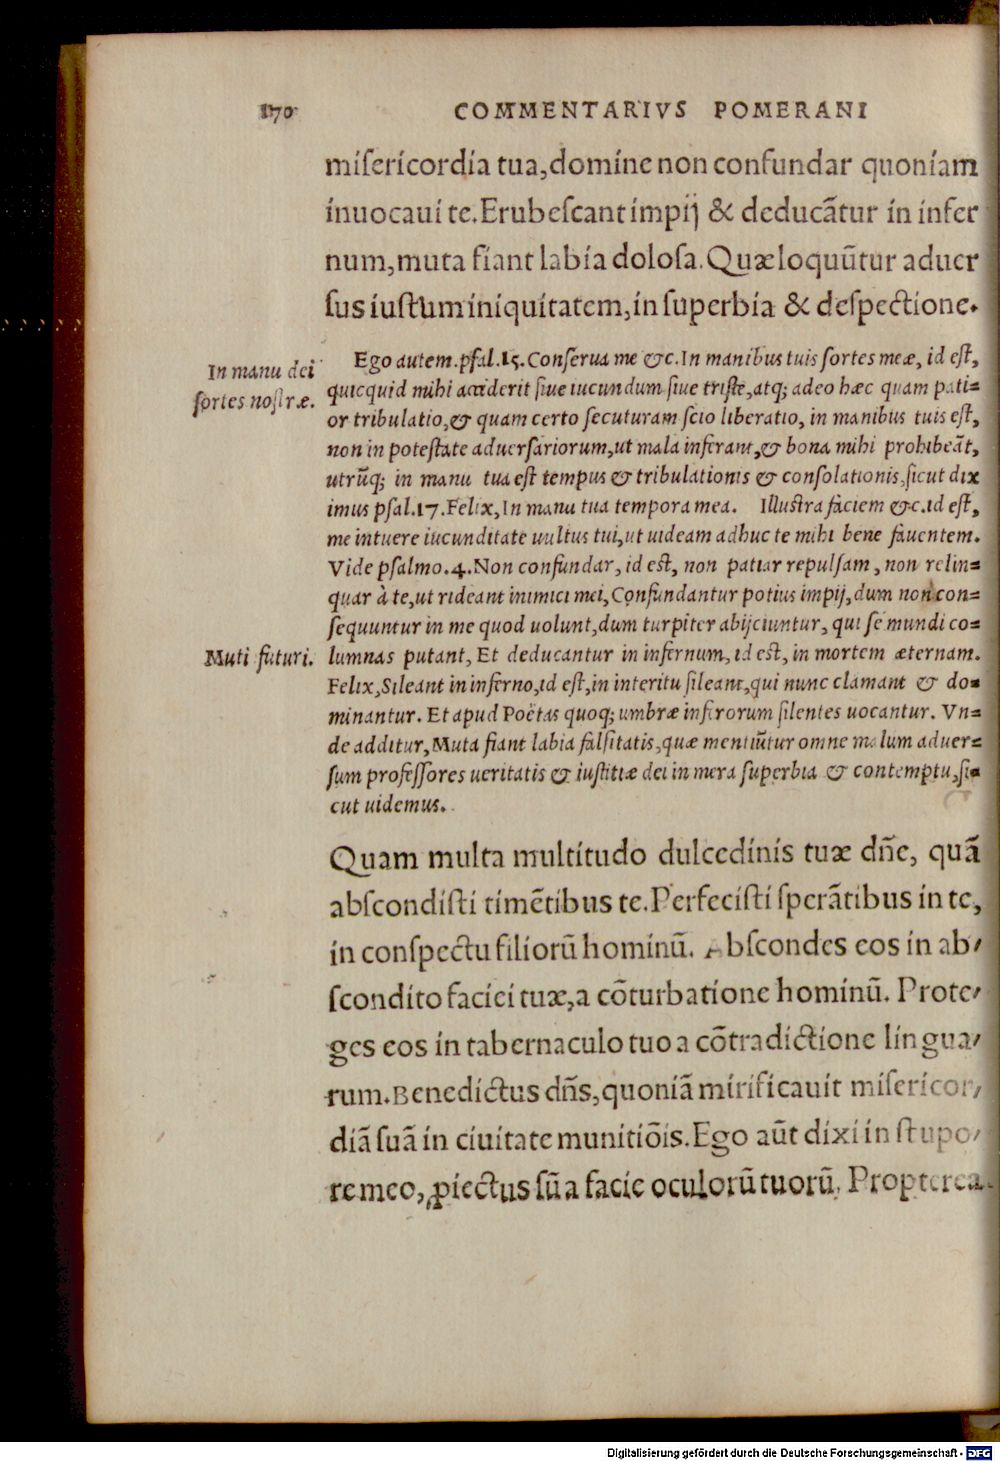 170 COMMENTARIVS POMERANI
miſericordia tua, domine non confundar quoniam
inuocaui te. Erubeſcant impij & deducãtur in infer
num, muta fiant labia doloſa. Quæ loquũtur aduer
ſus iuſtum iniquitatem, in ſuperbia & deſpectione.
In manu dei
ſortes noſtræ.
Ego autem. pſal. 15. Conſerua me &c. In manibus tuis ſortes meæ, id eſt,
quicquid mihi acciderit ſiue iucundum ſiue triſte, atq; adeo hæc quam pati=
or tribulatio, & quam certo ſecuturam ſcio liberatio, in manibus tuis eſt,
non in poteſtate aduerſariorum, ut mala inferant, & bona mihi prohibeãt,
utrũq; in manu tua eſt tempus & tribulationis & conſolationis, ſicut dix
imus pſal. 17. Felix, In manu tua tempora mea. Illuſtra faciem &c. id eſt,
me intuere iucunditate uultus tui, ut uideam adhuc te mihi bene fauentem.
Vide pſalmo. 4. Non confundar, id eſt, non patiar repulſam, non relin=
quar à te, ut rideant inimici mei, Confundantur potius impij, dum non con=
ſequuntur in me quod uolunt, dum turpiter abijciuntur, qui ſe mundi co=
Muti futuri.
lumnas putant, Et deducantur in infernum, id eſt, in mortem æternam.
Felix, Sileant in inferno, id eſt, in interitu ſileant, qui nunc clamant & do=
minantur. Et apud Poëtas quoq; umbræ inferorum ſilentes uocantur. Vn=
de additur, Muta fiant labia falſitatis, quæ mentiũtur omne malum aduer=
ſum profeſſores ueritatis & iuſtitiæ dei in mera ſuperbia & contemptu, ſi=
cut uidemus.
Quam multa multitudo dulcedinis tuæ dñe, quã
abſcondiſti timẽtibus te. Perfeciſti ſperãtibus in te,
in conſpectu filiorũ hominũ. Abſcondes eos in ab/
ſcondito faciei tuæ, a cõturbatione hominũ. Prote/
ges eos in tabernaculo tuo a cõtradictione lingua/
rum. Benedictus dñs, quoniã mirificauit miſericor/
diã ſuã in ciuitate munitiõis. Ego aũt dixi in ſtupo/
re meo, ꝓiectus ſũ a facie oculorũ tuorũ. Propterea
Digitalisierung gefördert durch die Deutsche Forschungsgemeinschaft - DFG